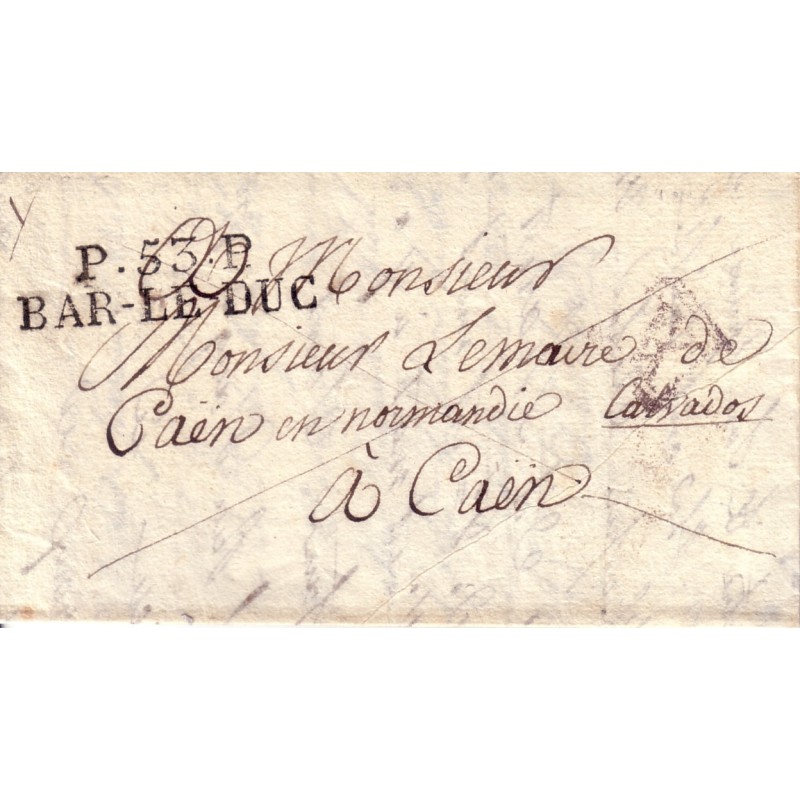 P. 53. P.
BAR-LE-DUC
A Monsieur
Monsieur Lemaire de
Caën en normandie Calvados
à Caën